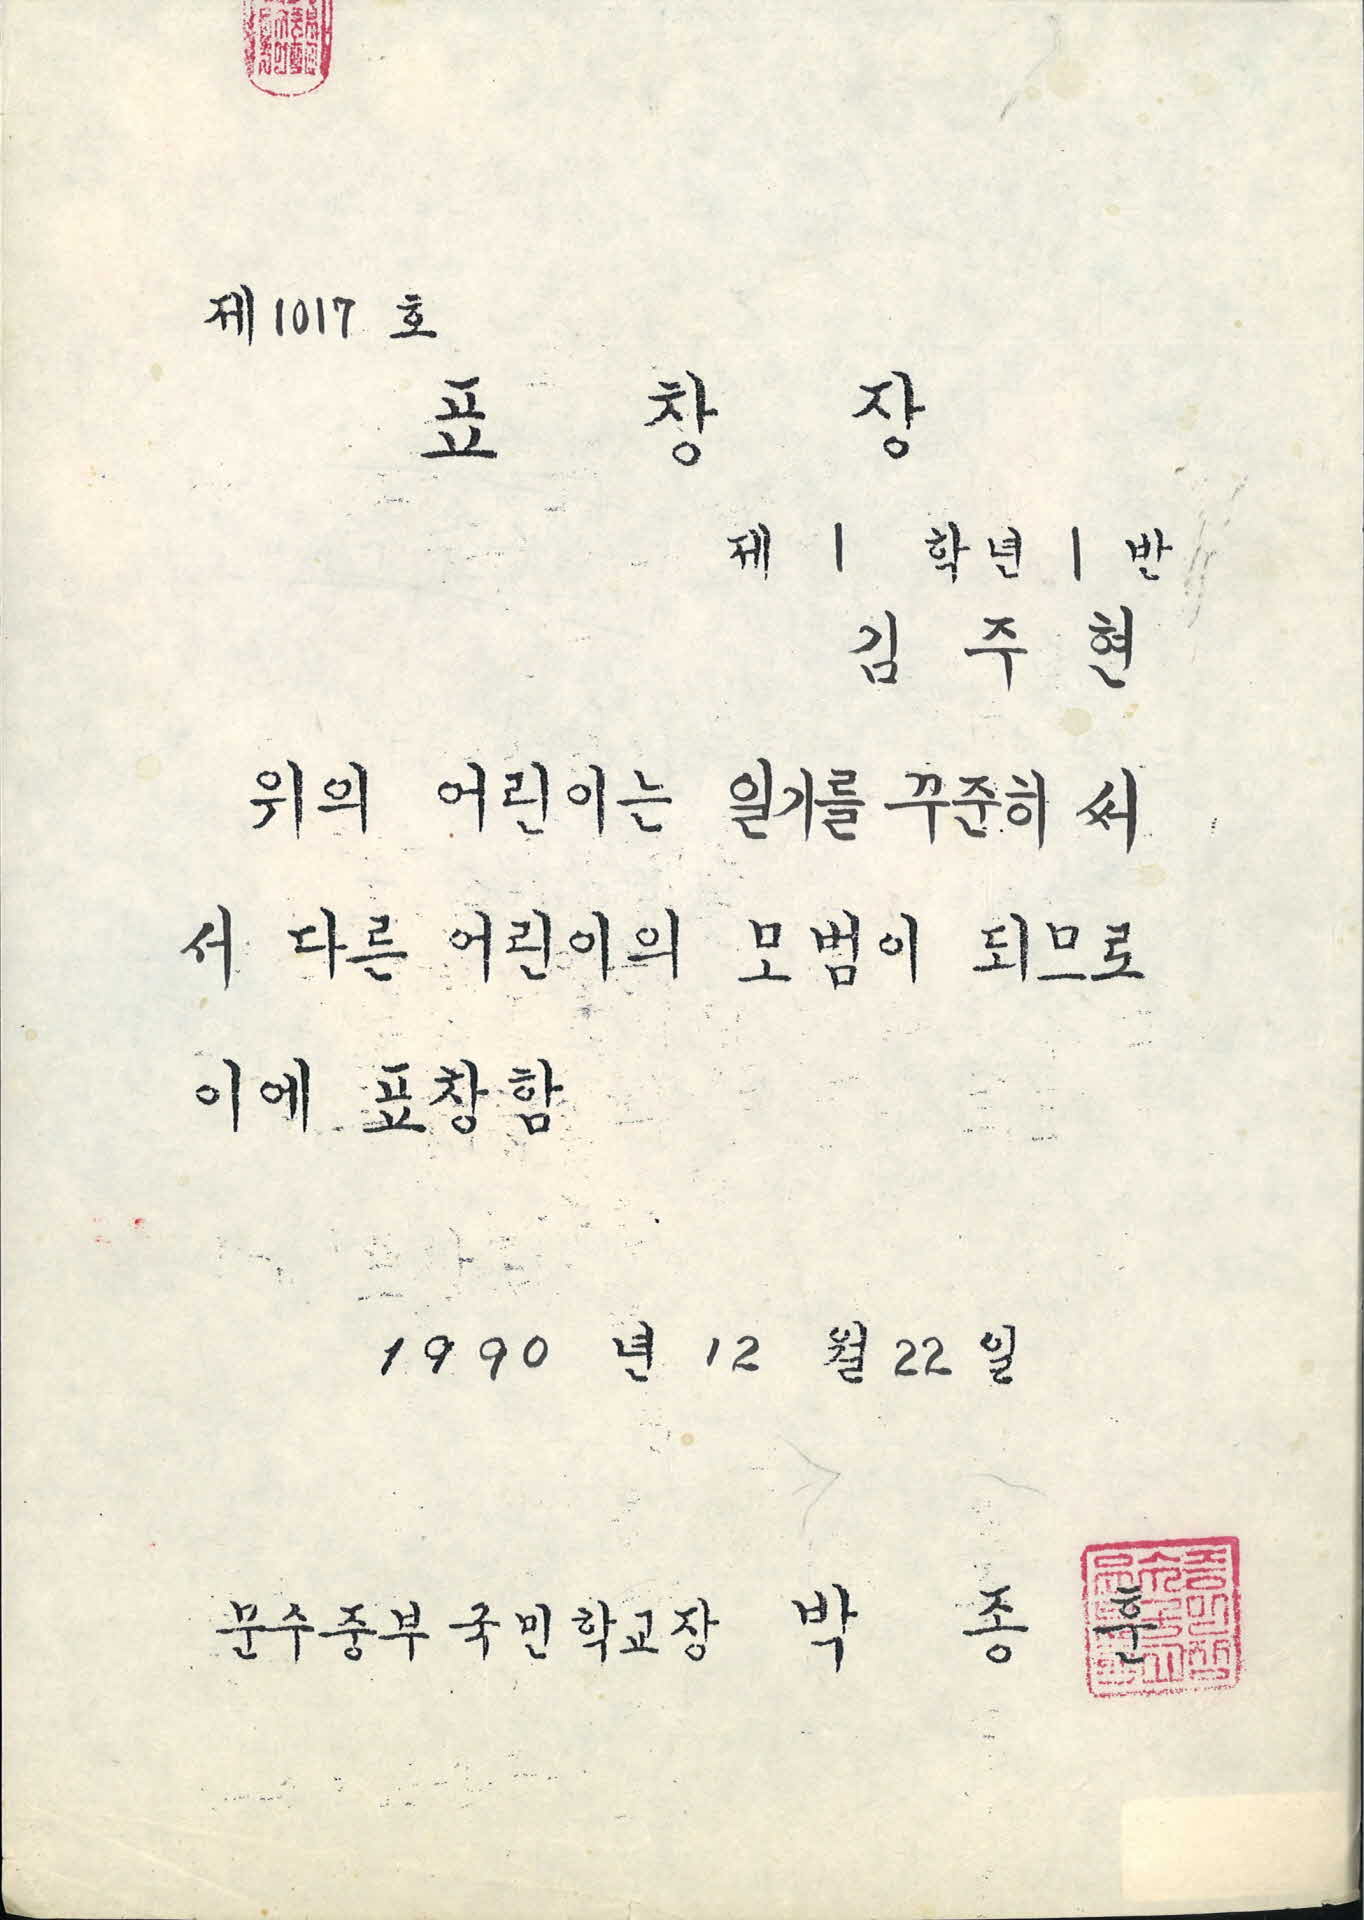 제 1017 호
표 창 장
제 1 학년 1 반
김 주 현
위의 어린이는 일기를 꾸준히 써
서 다른 어린이의 모범이 되므로
이에 표창함
1990 년 12 월 22 일
문수중부국민학교장 박 종 훈